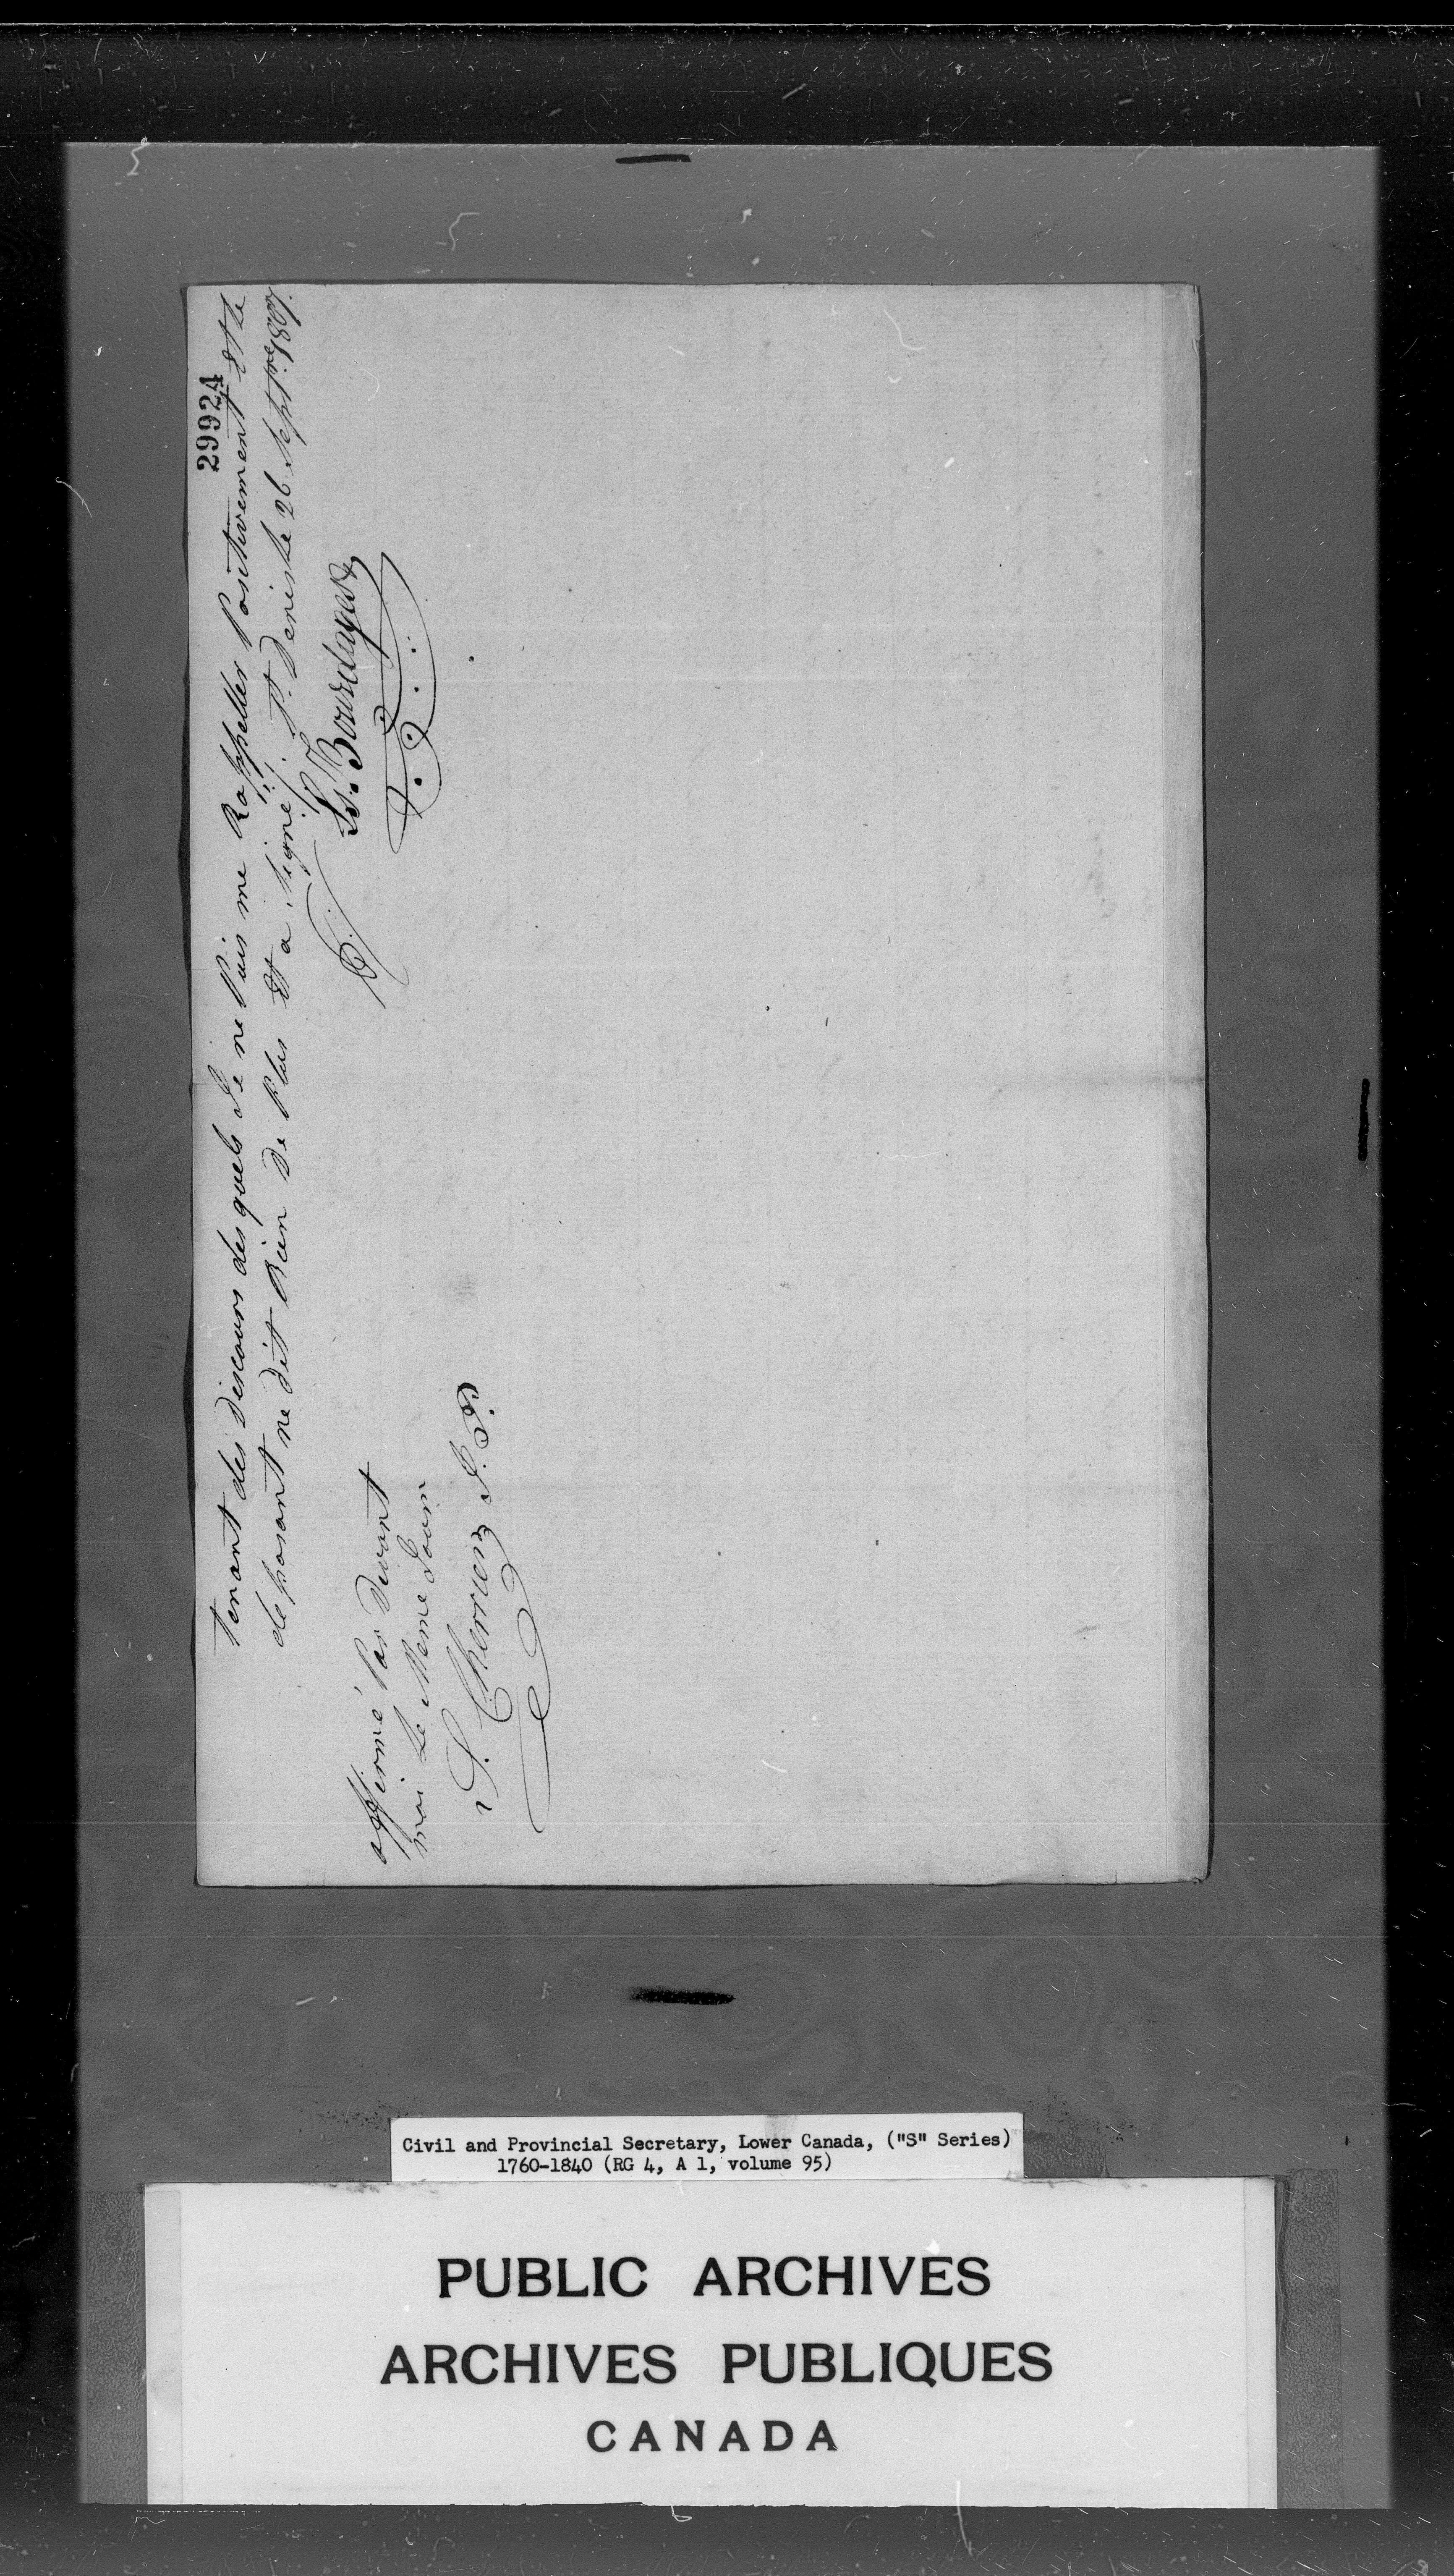 29924
Tenant des Discours desquels Je ne Puis me Rappeller Positivement Et le
deposant ne dit Rien De Plus Et a Signé /. St. Denis le 26 Septre. 1807.
Ls. Bourdages
affirmé Par Devant
moi Le Meme Jour
S. Cherrier J. P.
Civil and Provincial Secretary, Lower Canada, ("S" Series)
1760-1840 (RG 4, A 1, volume 95)
PUBLIC ARCHIVES
ARCHIVES PUBLIQUES
CANADA